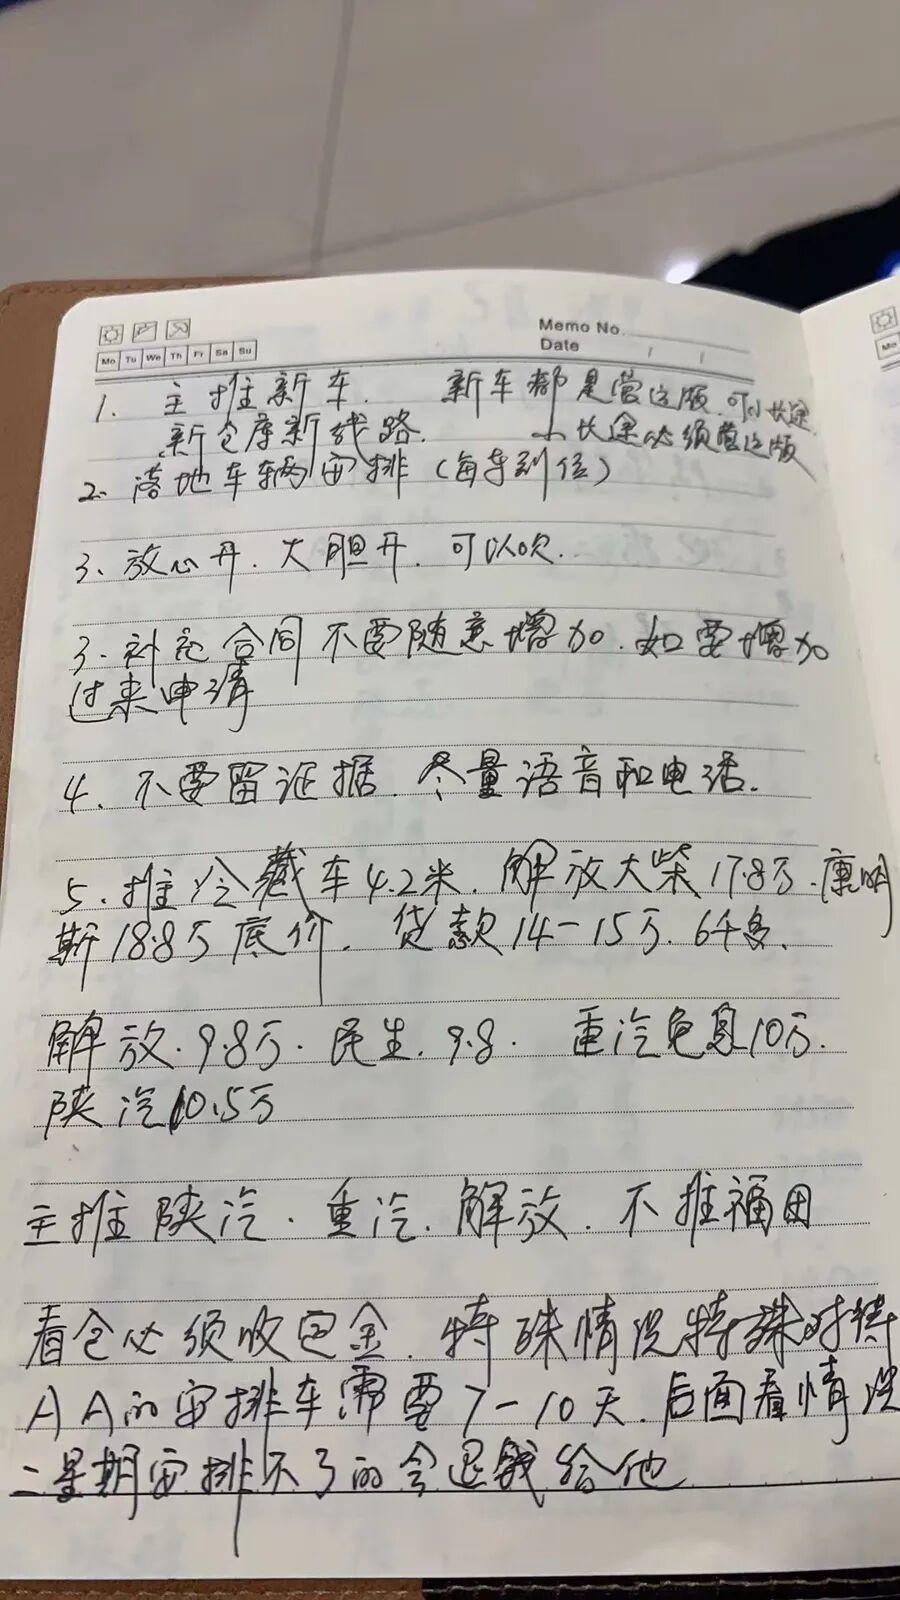 Memo No.
Date / /
Mo Tu We Th Fr Sa Su
1. 主推新车. 新车都是营运版.可以长途.
新仓库新线路. 小长途必须营运版
2. 落地车辆安排(每车到位)
3. 放心开.大胆开.可以吹.
3. 补充合同不要随意增加.如要增加
过来申请
4. 不要留证据.尽量语音和电话.
5. 推冷藏车4.2米.解放大柴17.8万.康明
斯18.8万底价.贷款14-15万.
解放.9.8万.民生.9.8. 重汽 10万.
陕汽10.5万
主推陕汽.重汽.解放.不推福田
看仓必须收包金.特殊情况特殊对待
AA的安排车需要7-10天.后面看情况
二星期安排不了的会退钱给他
Mo